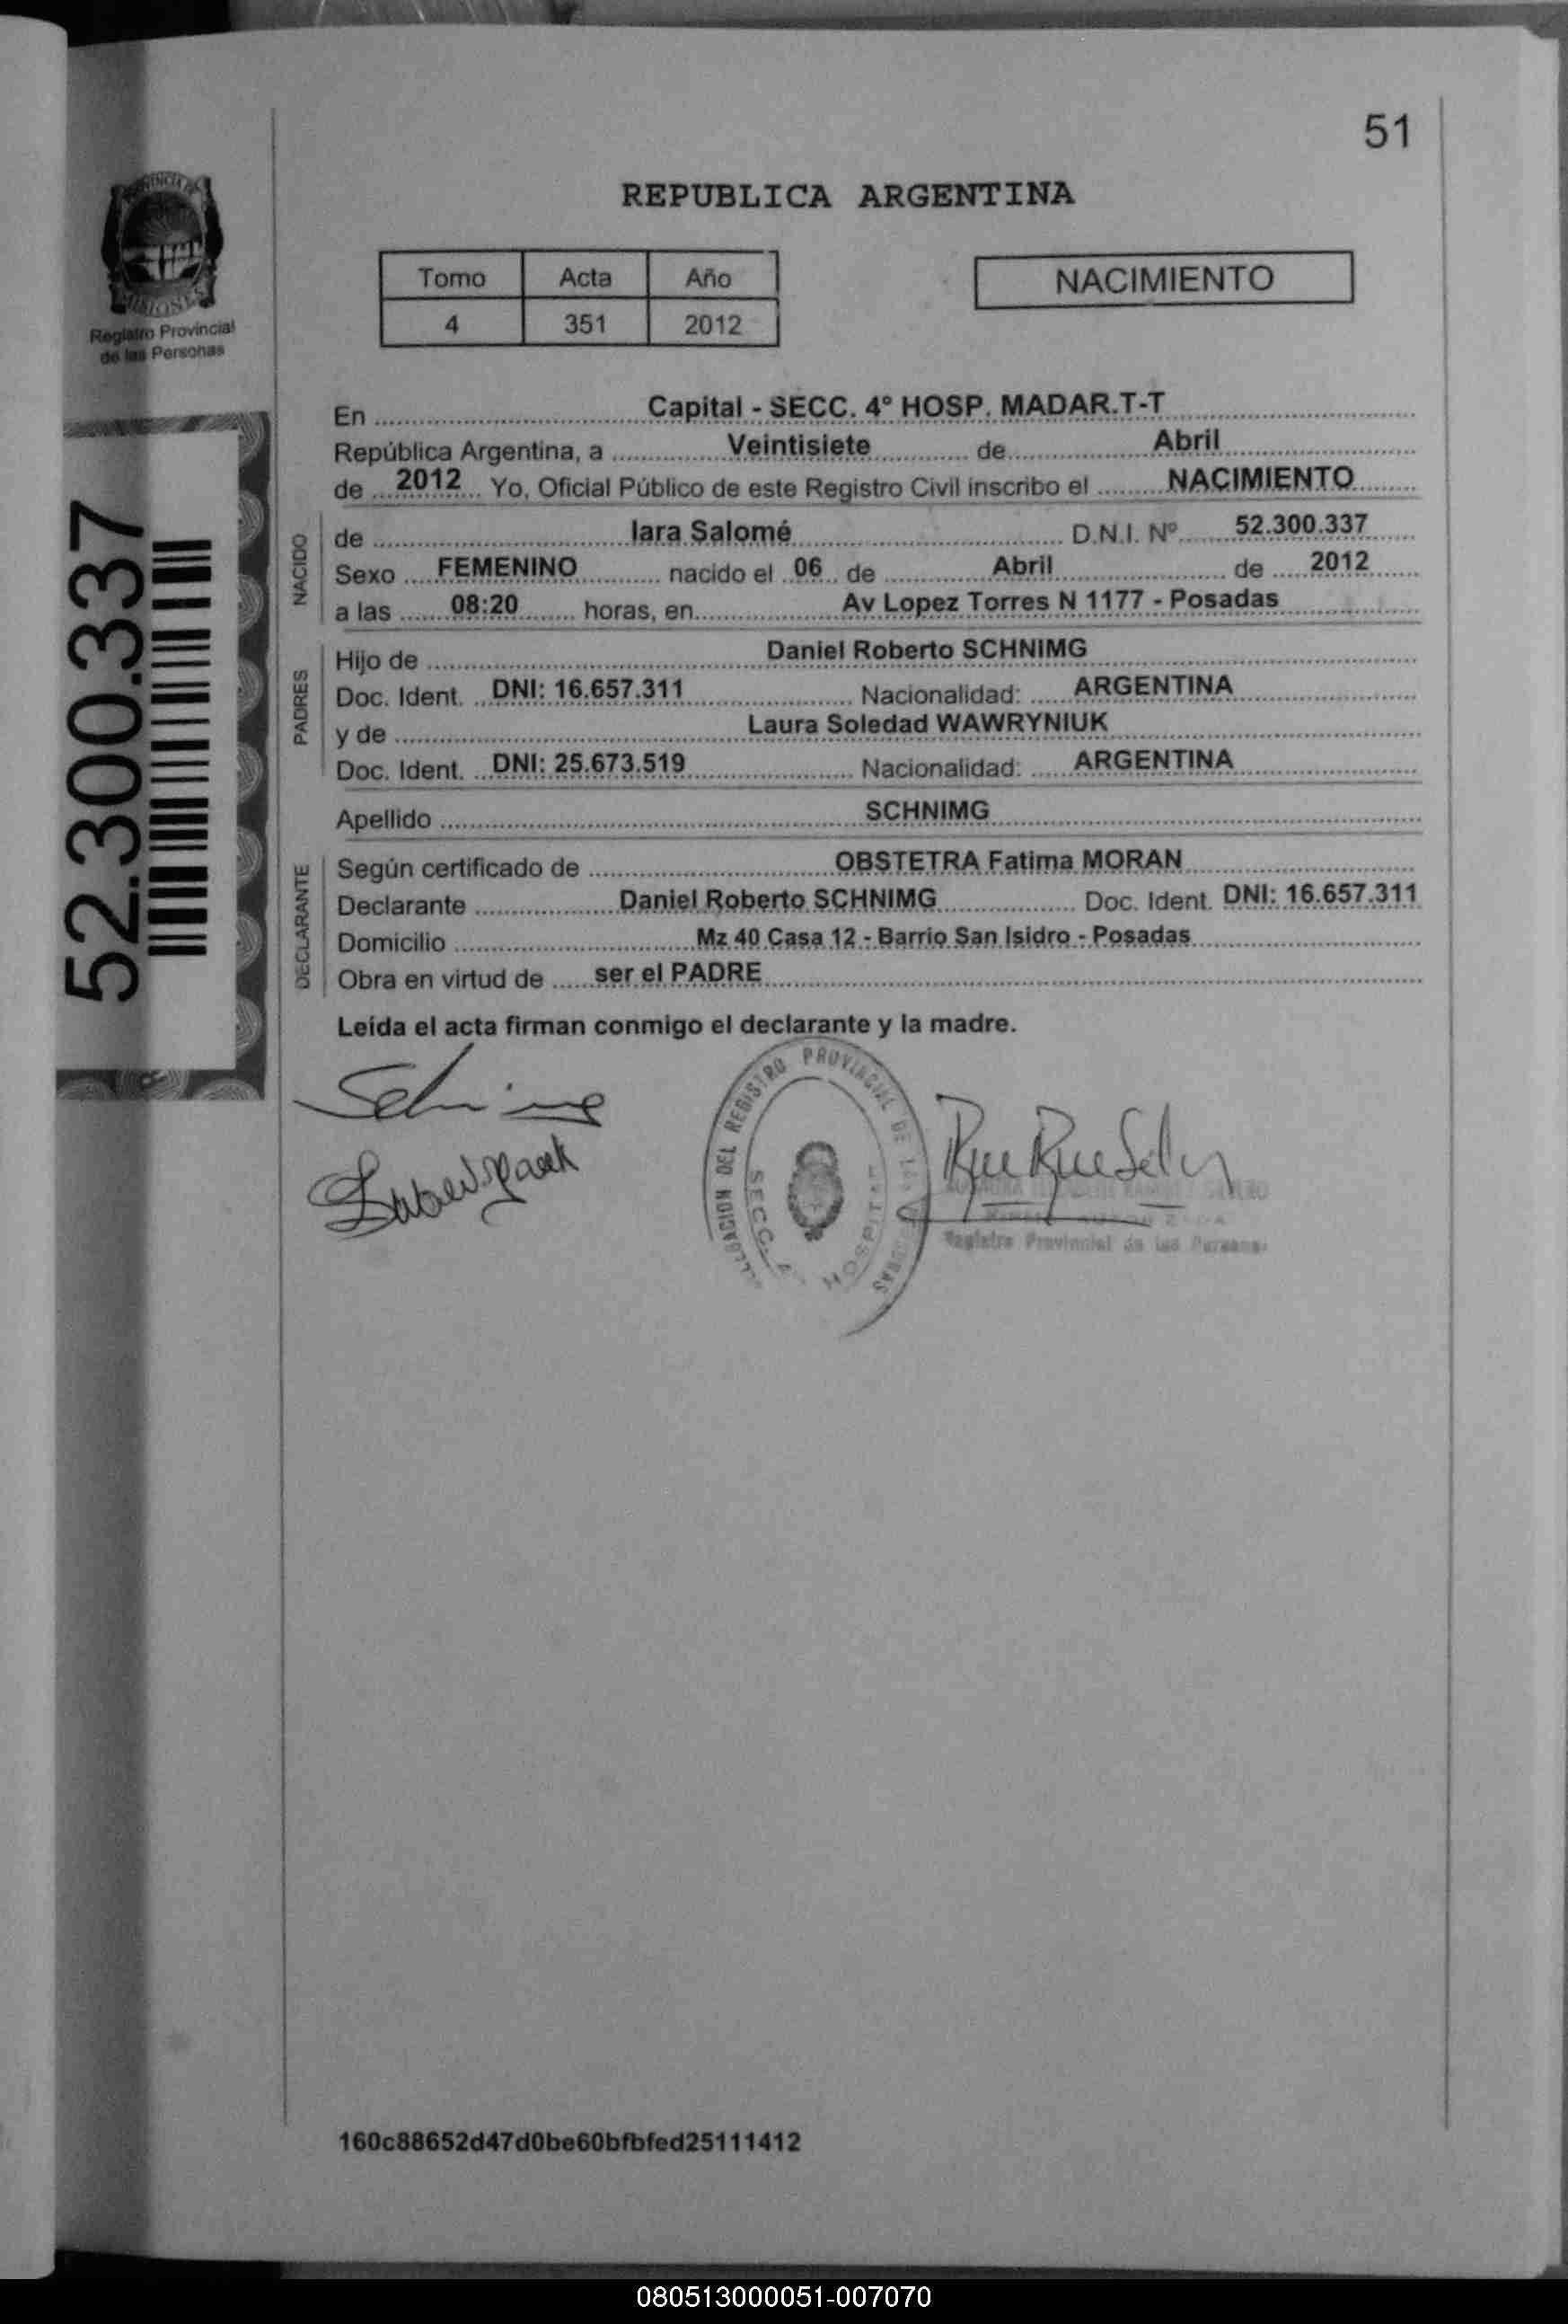 51
PROVINCIA DE
MISIONES
Registro Provincial
de las Personas
REPUBLICA ARGENTINA
Tomo Acta Año
4 351 2012
NACIMIENTO
52.300.337
En Capital - SECC. 4º HOSP. MADAR.T-T
República Argentina, a Veintisiete de Abril
de 2012 Yo, Oficial Público de este Registro Civil inscribo el NACIMIENTO
NACIDO
de Iara Salomé D.N.I. Nº 52.300.337
Sexo FEMENINO nacido el 06 de Abril de 2012
a las 08:20 horas, en Av Lopez Torres N 1177 - Posadas
PADRES
Hijo de Daniel Roberto SCHNIMG
Doc. Ident. DNI: 16.657.311 Nacionalidad: ARGENTINA
y de Laura Soledad WAWRYNIUK
Doc. Ident. DNI: 25.673.519 Nacionalidad: ARGENTINA
Apellido SCHNIMG
DECLARANTE
Según certificado de OBSTETRA Fatima MORAN
Declarante Daniel Roberto SCHNIMG Doc. Ident. DNI: 16.657.311
Domicilio Mz 40 Casa 12 - Barrio San Isidro - Posadas
Obra en virtud de ser el PADRE
Leída el acta firman conmigo el declarante y la madre.
DELEGACION DEL REGISTRO PROVINCIAL DE LAS PERSONAS
SECC. 4 HOSPITAL
Registro Provincial de las Personas
160c88652d47d0be60bfbfed25111412
080513000051-007070